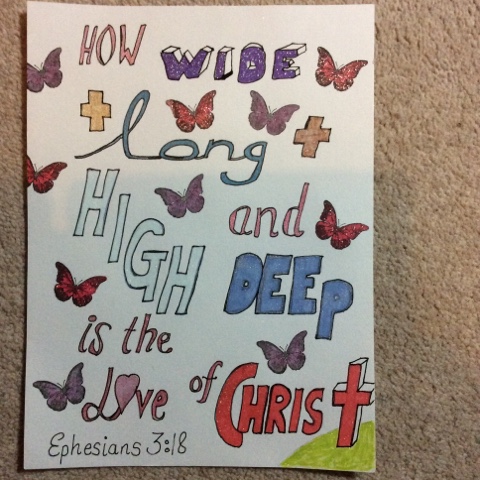 HOW WIDE
long
HIGH and
DEEP
is the
Love of CHRIST
Ephesians 3:18